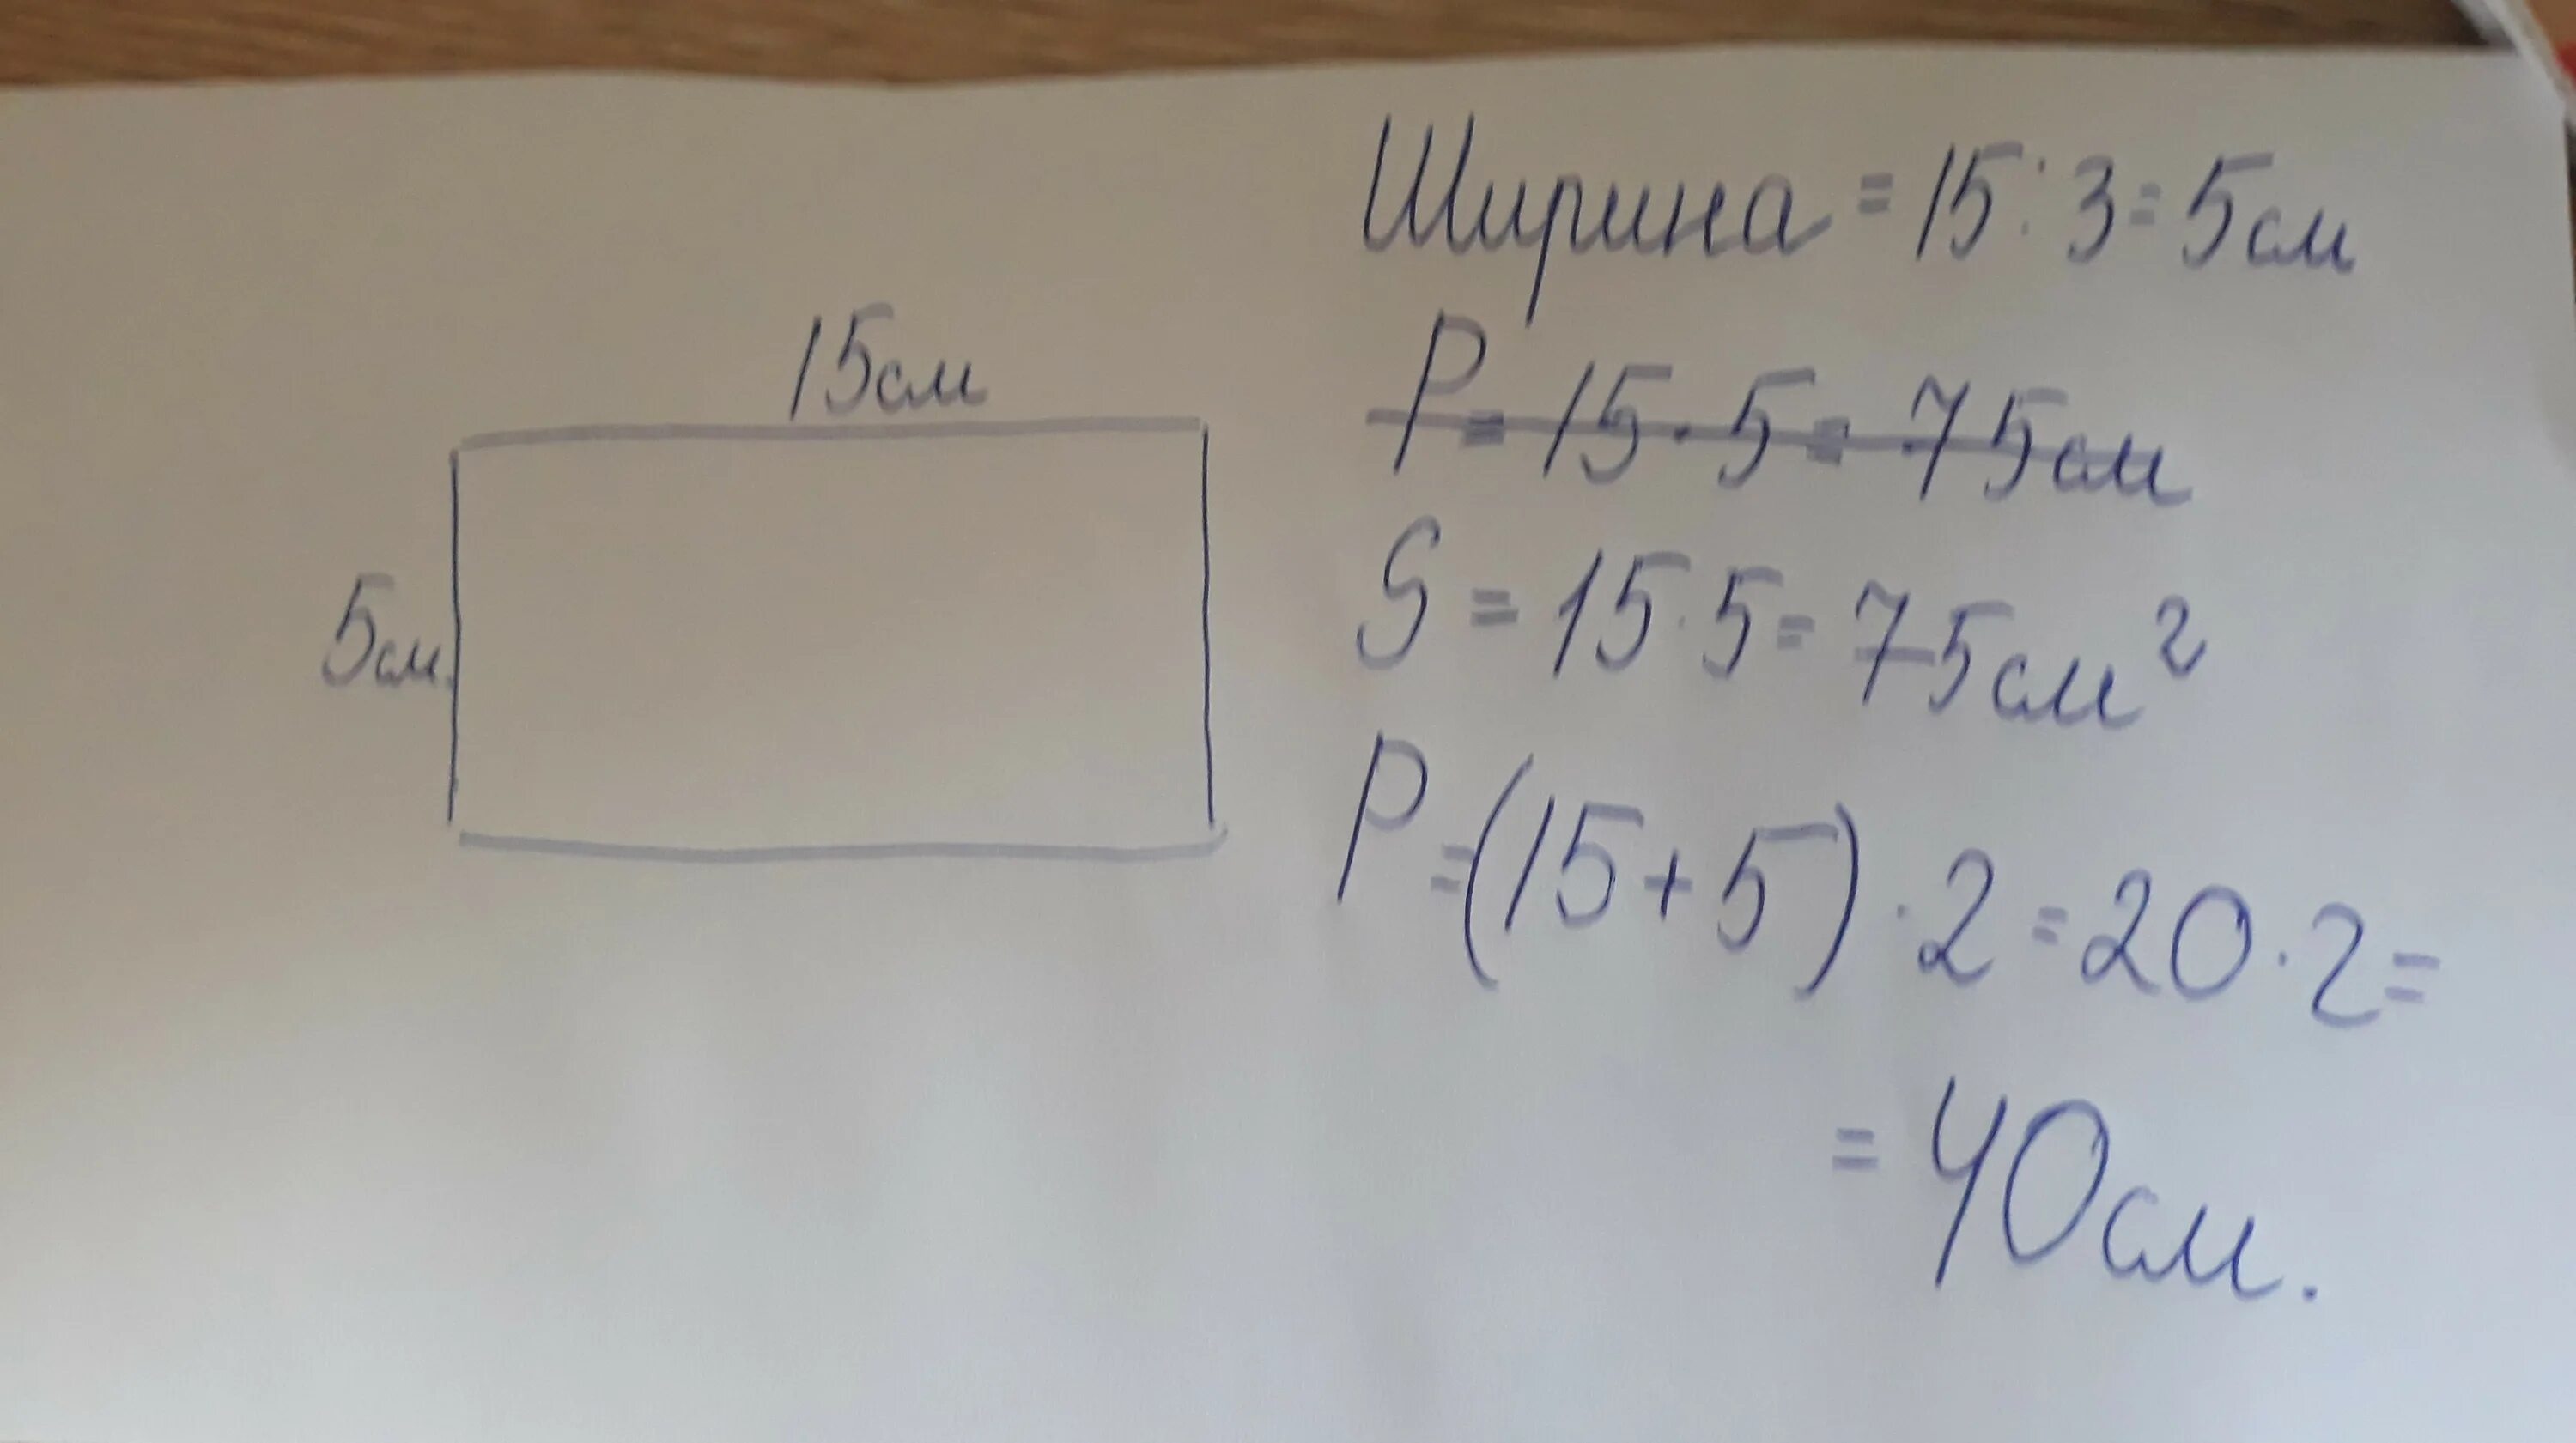 15см
5см.
Ширина = 15 : 3 = 5см
P = 15 · 5 = 75см
S = 15 · 5 = 75см²
P = (15 + 5) · 2 = 20 · 2 =
= 40см.